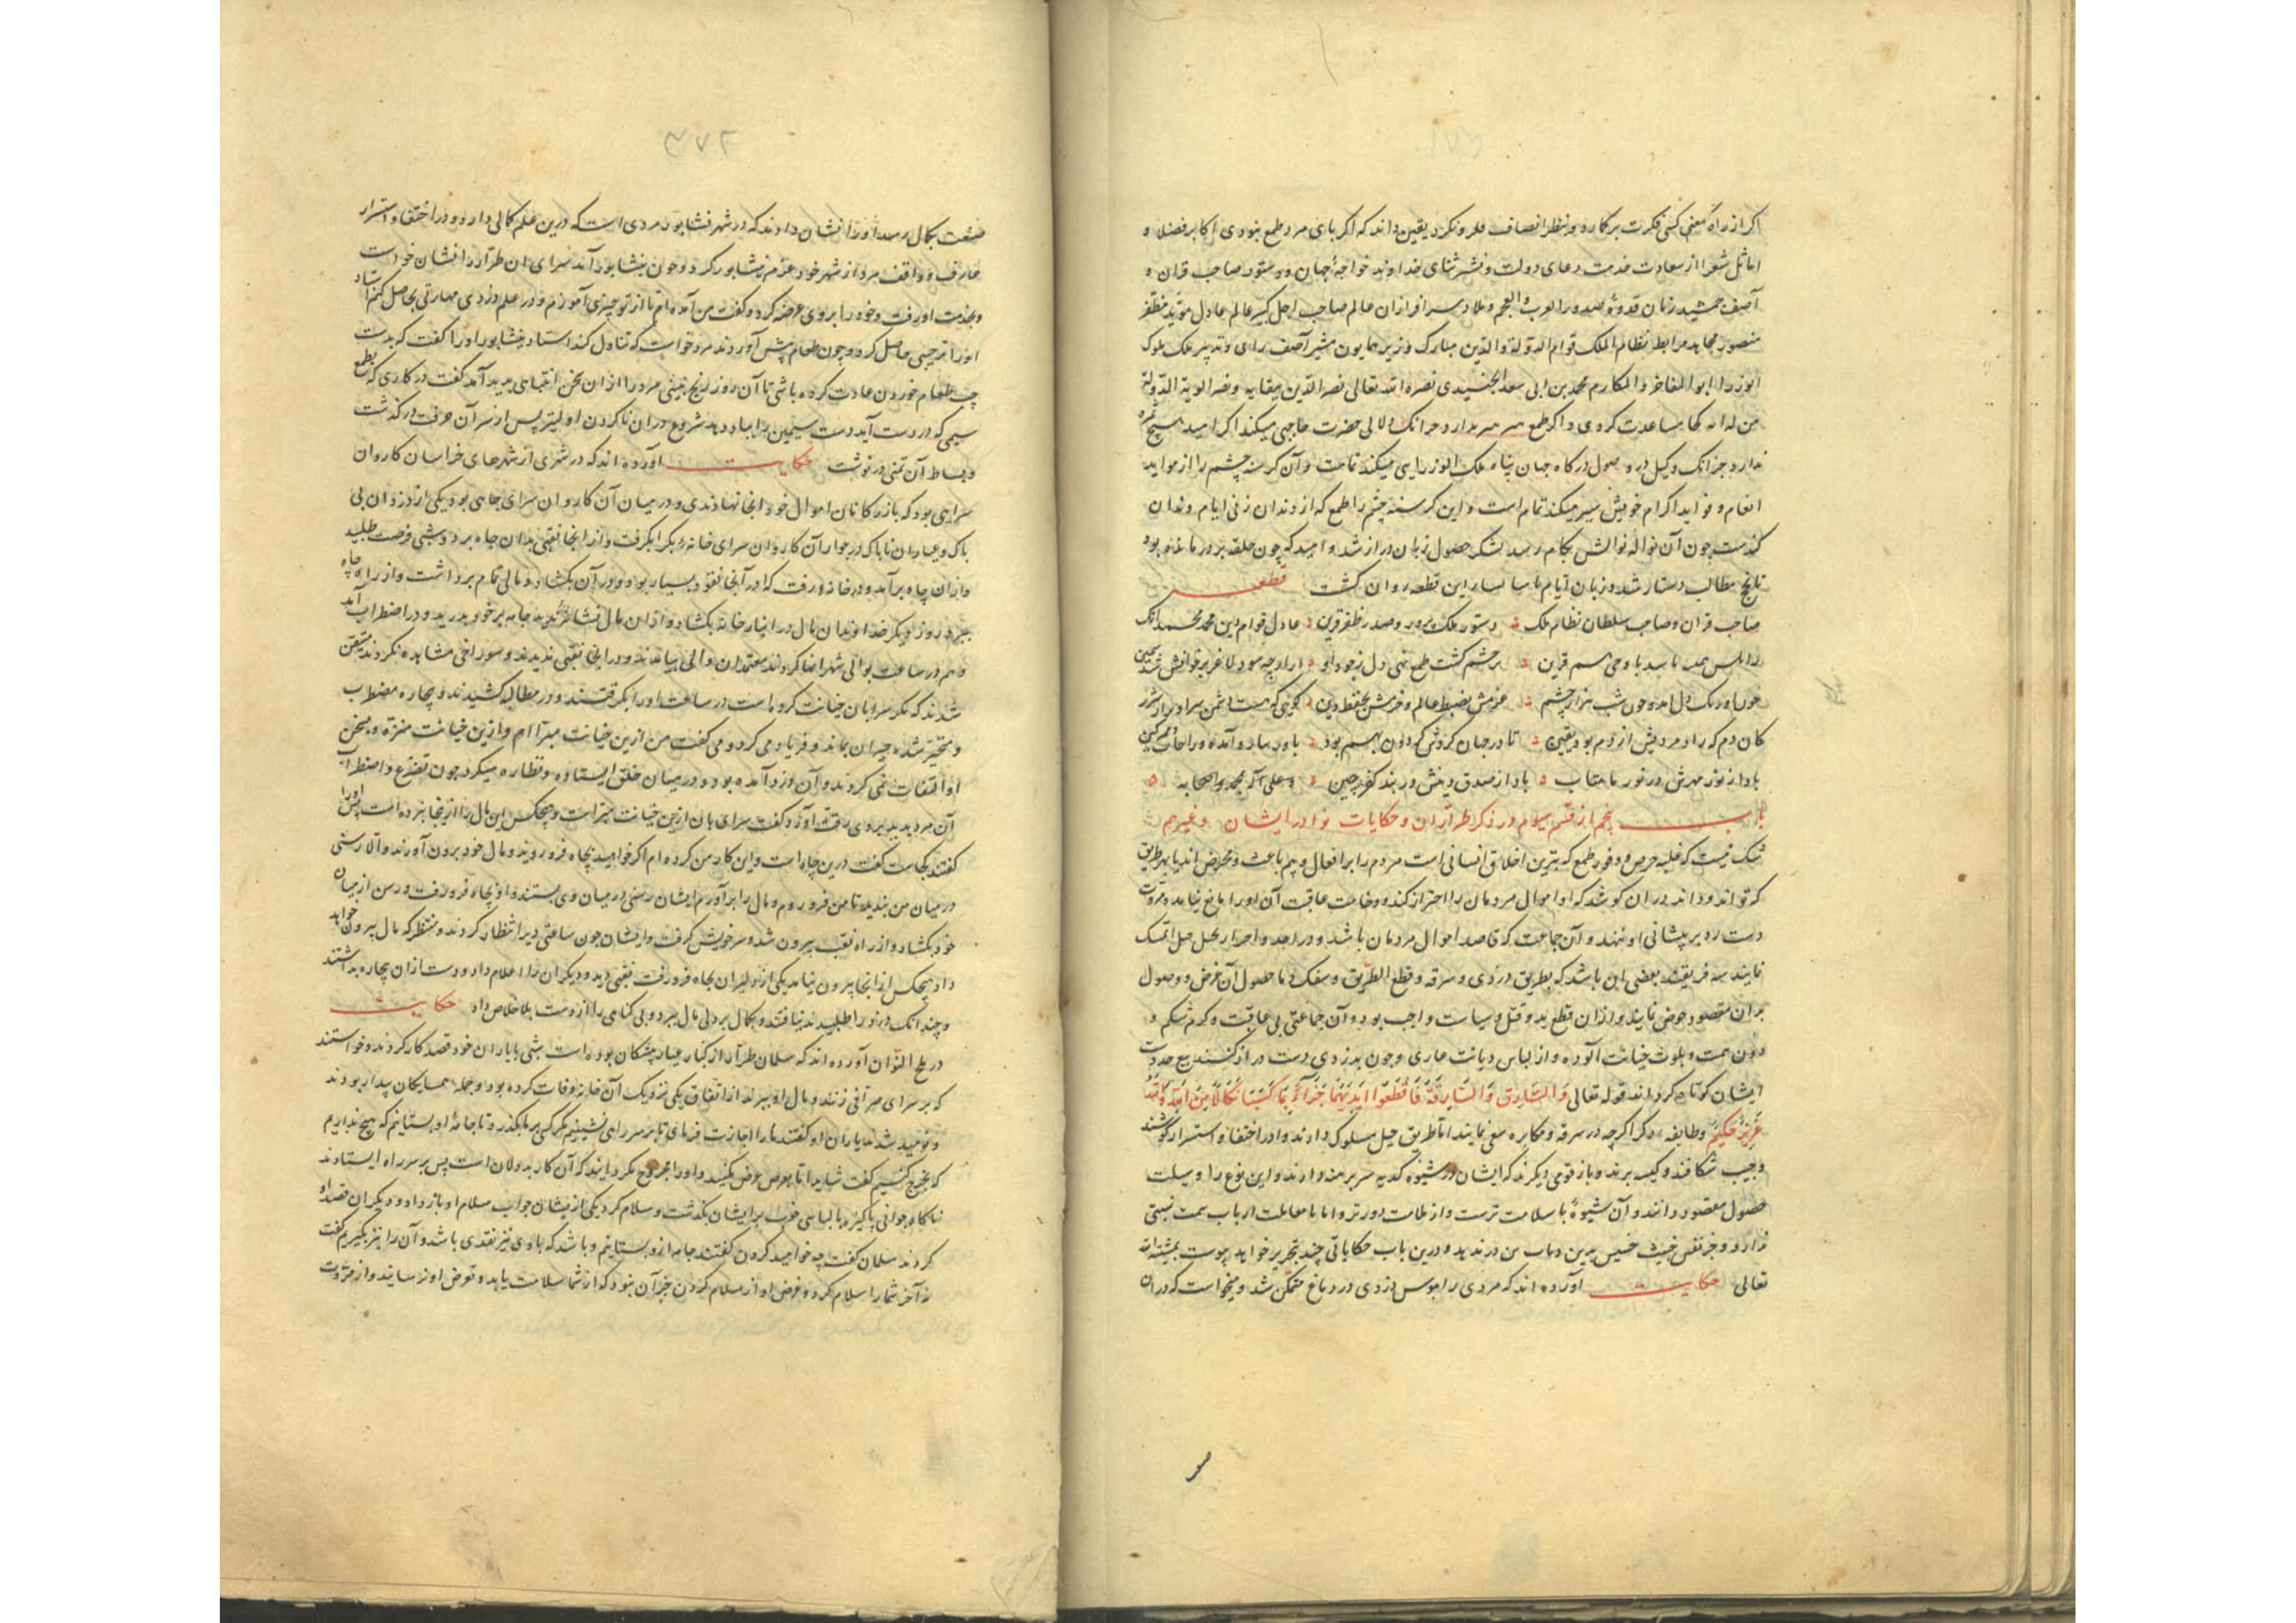 اکر از راه معنی کسی فکرت بر کمارد و بنظر انصاف فرو نکرد یقین داند که اکر پای مرد طمع نبودی اکابر فضلا و
اماثل شعرا از سعادت خدمت دعای دولت و نشر ثنای خداوند خواجه جهان و دستور صاحب قران و
آصف جمشید زمان قدوهٔ صدور العرب والعجم و ملاذ سرافرازان عالم صاحب اجل کبیر عالم عادل مؤید مظفر
منصور مجاهد مرابط نظام الملک قوام الدولة والدین مبارک وزیر همایون مشیر آصف رای و تدبیر ملک ملوک
الوزرا ابو المفاخر والمکارم محمد بن ابی سعد الجنیدی نصره الله تعالی نصر الدین ببقایه ونصر الویة الدولة
من لدانه کجا مساعدت کردی و اکر طمع دارد جز آنک دلالی حضرت حاجبی میکند اکر امید هیچ ثمره
ندارد جز آنک وکیل در وصول درکاه جهان پناه ملک الوزرایی میکند تمامت و آن کرسنه چشم را از مواید
انعام و فواید اکرام خویش سیر میکند تمام است و این کرسنه چشم را طمع که از دندان زنی ایام دندان
کندست چون آن نواله نوالش بکام رسد بشکر حصول زبان دراز شد و امید که چون حلقه بر در مانده بود
نانج مطالب دستار شد و زبان ایام این قطعه روان کشت قطعه
صاحب قران و صاحب سلطان نظام ملک دستور ملک پرور و صدر ظفر قرین عادل قوام دین محمد محمد آنک
برچشم کشت طمع تهی دل ز جود او
هزار چشم عزمش بضبط عالم و حزمش بحفظ دین
کان دم که زاد مردیش از دم بود یقین تا در جهان کردش کردون بهم بود
بادا ز نور مهرش در نور ماهتاب بادا ز صدق دینش در بند کفر چین وعلی آله محمد واصحابه
باب پنجم از قسم سیوم در ذکر طراران و حکایات نوادر ایشان وغیرهم
شک نیست که غلبه حرص و وفور طمع که بترین اخلاق انسانی است مردم را بر افعال ذمیم باعث و محرض اند بهر طریق
که تواند و داند در ان کوشد که او اموال مردمان را احتراز کند و وخامت عاقبت آن او را مانع نیاید و مروت
دست رد بر پیشانی او ننهد و آن جماعت که قاصد اموال مردمان باشد و در اخذ و احراز بحبل حیل تمسک
نمایند سه فریقند بعضی ان باشد که بطریق دزدی و سرقه و قطع الطریق و سفک دما حصول آن غرض و وصول
بران مقصود خوض نمایند و از ان قطع ید و قتل و سیاست واجب بود و آن جماعتی بی عاقبت و کرم شکم و
دون همت و بلوث خیانت آلوده و از لباس دیانت عاری و چون بدزدی دست دراز کنند تیغ حد دست
ایشان کوتاه کرداند قوله تعالی وَالسَّارِقُ وَالسَّارِقَةُ فَاقْطَعُوا اَیْدِیَهُمَا جَزَآءً بِمَا کَسَبَا نَکَالًا مِنَ اللهِ وَاللهُ
عَزِیْزٌ حَکِیْمٌ وطایفه دکر اکرچه در سرقه و مکابره سعی نمایند اما طریق حیل مسلوک دارند و در اختفا و استسرار کوشند
و جیب شکافند و کیسه برند و باز قومی دیکرند که ایشان در شیوه کدیه سر برهنه دارند و این نوع را وسیلت
حصول مقصود دانند و آن شیوهٔ با سلامت ترست و از ملامت دورتر و اما با معاملت ارباب همت نسبتی
ندارد و جز نفس خبیث خسیس بدین دمات تن در ندهد و درین باب حکایاتی چند تحریر خواهد پیوست بمشیة الله
تعالی حکایت آورده اند که مردی را هوس دزدی در دماغ متمکن شد و میخواست که در ان
صنعت
صنعت بکمال رسد او را نشان دادند که در شهر نشابور مردی است که درین علم کمالی دارد و در اختفا و استسرار
عارف و واقف مرد از شهر خود عزم نیشابور کرد و چون بنشابور آمد سرای ان طرار را نشان خواست
و بخدمت او رفت و خود را بر وی عرضه کرد و کفت من آمده ام تا از تو چیزی آموزم و در علم دزدی مهارتی حاصل کنم استاد
او را ترحیبی حاصل کرد و چون طعام پیش آوردند مرد خواست که تناول کند استاد نیشابور او را کفت که بدست
چپ طعام خوردن عادت کرده باشی تا آن روز رنج نبینی مرد را از ان سخن انتباهی پدید آمد کفت در کاری که بطمع
سیمی که در دست آید دست سیمین را بباد دهد شروع در ان ناکردن اولیتر پس از سر آن حرفت در کذشت
و بساط آن تمنی در نوشت حکایت آورده اند که در شهری از شهرهای خراسان کاروان
سرایی بود که بازرکانان اموال خود انجا نهادندی و در میان آن کاروان سرای چاهی بود یکی از دزدان بی
باک و عیاران ناپاک در جوار آن کاروان سرای خانهٔ بکرا بکرفت و از انجا نقبی بدان چاه برد و شبی فرصت طلبید
و از ان چاه بر آمد و در خانه رفت که در آنجا نقود بسیار بود و در آن بکشاد و مالی تمام برداشت و از راه چاه
ببرد روز دیکر خداوندان مال در انبار خانه بکشاد و از ان مال نشانی ندید جامه بر خود بدرید و در اضطراب آمد
و هم در ساعت بوالی شهر انها کردند معتمدان والی بیامدند و در انجا نقبی ندیدند و سوراخی مشاهده نکردند متیقن
شدند که مکر سرابان خیانت کرده است در ساعت او را بکرفتند و در مطالبه کشیدند و بیچاره مضطرب
و متحیر شده حیران بماند و فریاد می کرد و می کفت من ازین خیانت مبرا ام و ازین خیانت منزه و بسخن
او التفات نمی کردند و آن دزد آمده بود و در میان خلق ایستاده و نظاره میکرد چون تضرع و اضطراب
آن مرد بدید بر وی رقت آورد کفت سرای بان ازین خیانت مبراست و هیچکس این مال را از ینجا نبرده است پس او را
کفتند کجاست کفت درین چاه است و این کار من کرده ام اکر خواهید بچاه فرو روند و مال خود برون آورند والا رسنی
در میان من بندید تا من فرو روم و مال را بر آورم ایشان رسنی در میان وی بستند و او بچاه فرو رفت و رسن از میان
خود بکشاد و از راه نقب بیرون شد و سر خویش کرفت و ایشان چون ساعتی دیر انتظار کردند و منتظر که مال بیرون خواهد
داد هیچکس از انجا بیرون نیامد یکی از دلیران بچاه فرو رفت نقبی دید و دیکران را اعلام داد و دست ازان بیچاره بداشتند
و چندانک دزد را طلبیدند نیافتند و بکمال پردلی مال ببرد و بی کناهی را از دست بلا خلاص داد حکایت
در ملح النوادر آورده اند که سلمان طرار از کبار عیار پیشکان بوده است شبی با یاران خود قصد کار کردند و خواستند
که بر سرای صرافی زنند و مال او ببرند از اتفاق یکی نزدیک آن خانه وفات کرده بود و جمله همسایکان بیدار بودند
و نومید شدند یاران او کفتند ما را اجازت فرمای تا بر سر راهی نشینیم مکر کسی بر ما بکذرد تا جامهٔ او بستانیم که هیچ نداریم
که بخرج کنیم کفت شاید اما بعوض عوض بکنید و او را مجروح مکردانید که آن کار بددلان است پس بر سر راه ایستادند
ناکاه جوانی پاکیزه با لباسی خوب بر ایشان بکذشت و سلام کرد یکی از ایشان جواب سلام او باز داد و دیکران قصد او
کردند سلمان کفت چه خواهید کردن کفتند جامه ازو بستانیم و باشد که با وی نیز نقدی باشد و آن را نیز بکیریم کفت
نه آخر شما را سلام کرد و غرض او از سلام کردن جز آن نبود که از شما سلامت یابد و تعرض او نرسانید و از مروت